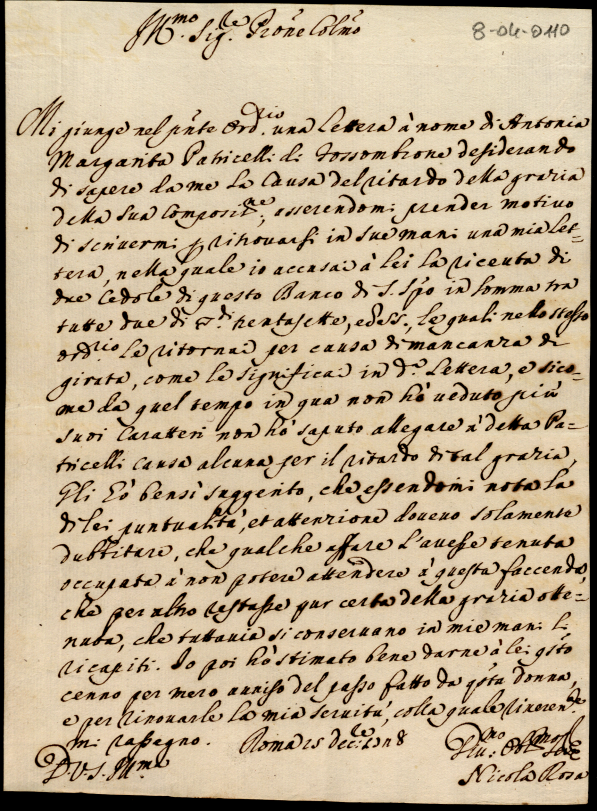 Ill.mo Sig.re Prône Colmo
8-04-0110
Mi giunge nel pnte Ord.rio una Lettera à nome di Antonia
Margarita Patricelli di Fossombrone desiderando
di sapere da me La Causa del ritardo della grazia
della sua Composit.ne, asserendomi prender motivo
di scrivermi p ritrovarsi in sue mani una mia Let-
tera, nella quale io accusai à lei La riceuta di
due Cedole di questo Banco di S. Spo in somma tra
tutte due di trentasette, le quali nello stesso
ord.rio Le ritornai per causa di mancanza di
girata, come le significai in d.a Lettera, e sico-
me da quel tempo in qua non hò veduto più
suoi Caratteri non hò saputo allegare à detta Pa-
tricelli causa alcuna per il ritardo di tal grazia,
Gli hò bensì suggerito, che essendomi nota La
di lei puntualità, et attenzione dovevo solamente
dubbitare, che qualche affare L'avesse tenuta
occupata à non potere attendere à questa faccenda,
che per altro restasse pur certa della grazia otte-
nuta, che tuttavia si conservano in mie mani li
ricapiti. Io poi hò stimato bene darne à lei qsto
cenno per mero avviso del passo fatto da qsta donna,
e per rinovarle La mia servitù, colla quale riveren.te
mi rassegno. Roma 25 dec.re
D.V.S. Ill.ma
Nicola Rosa